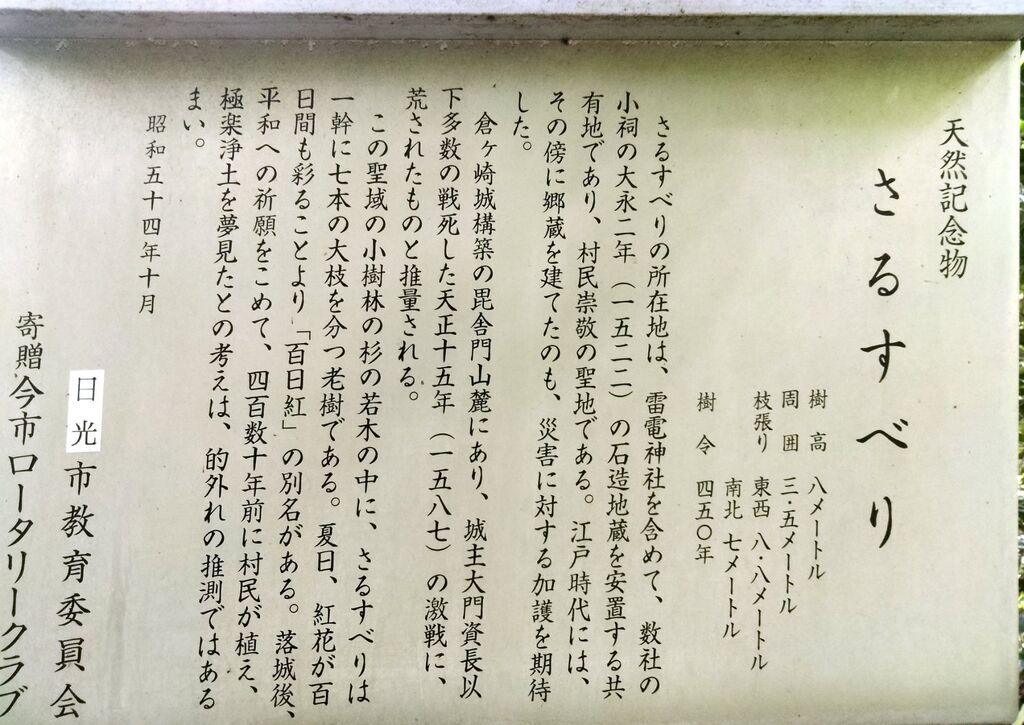 天然記念物
さるすべり
樹高 八メートル
周囲 三・五メートル
枝張り 東西 八・八メートル
南北 七メートル
樹令 四五〇年
さるすべりの所在地は、雷電神社を含めて、数社の
小祠の大永二年（一五二二）の石造地蔵を安置する共
有地であり、村民崇敬の聖地である。江戸時代には、
その傍に郷蔵を建てたのも、災害に対する加護を期待
した。
倉ヶ崎城構築の毘舎門山麓にあり、城主大門資長以
下多数の戦死した天正十五年（一五八七）の激戦に、
荒されたものと推量される。
この聖域の小樹林の杉の若木の中に、さるすべりは
一幹に七本の大枝を分つ老樹である。夏日、紅花が百
日間も彩ることより「百日紅」の別名がある。落城後、
平和への祈願をこめて、四百数十年前に村民が植え、
極楽浄土を夢見たとの考えは、的外れの推測ではある
まい。
昭和五十四年十月
日光市教育委員会
寄贈 今市ロータリークラブ